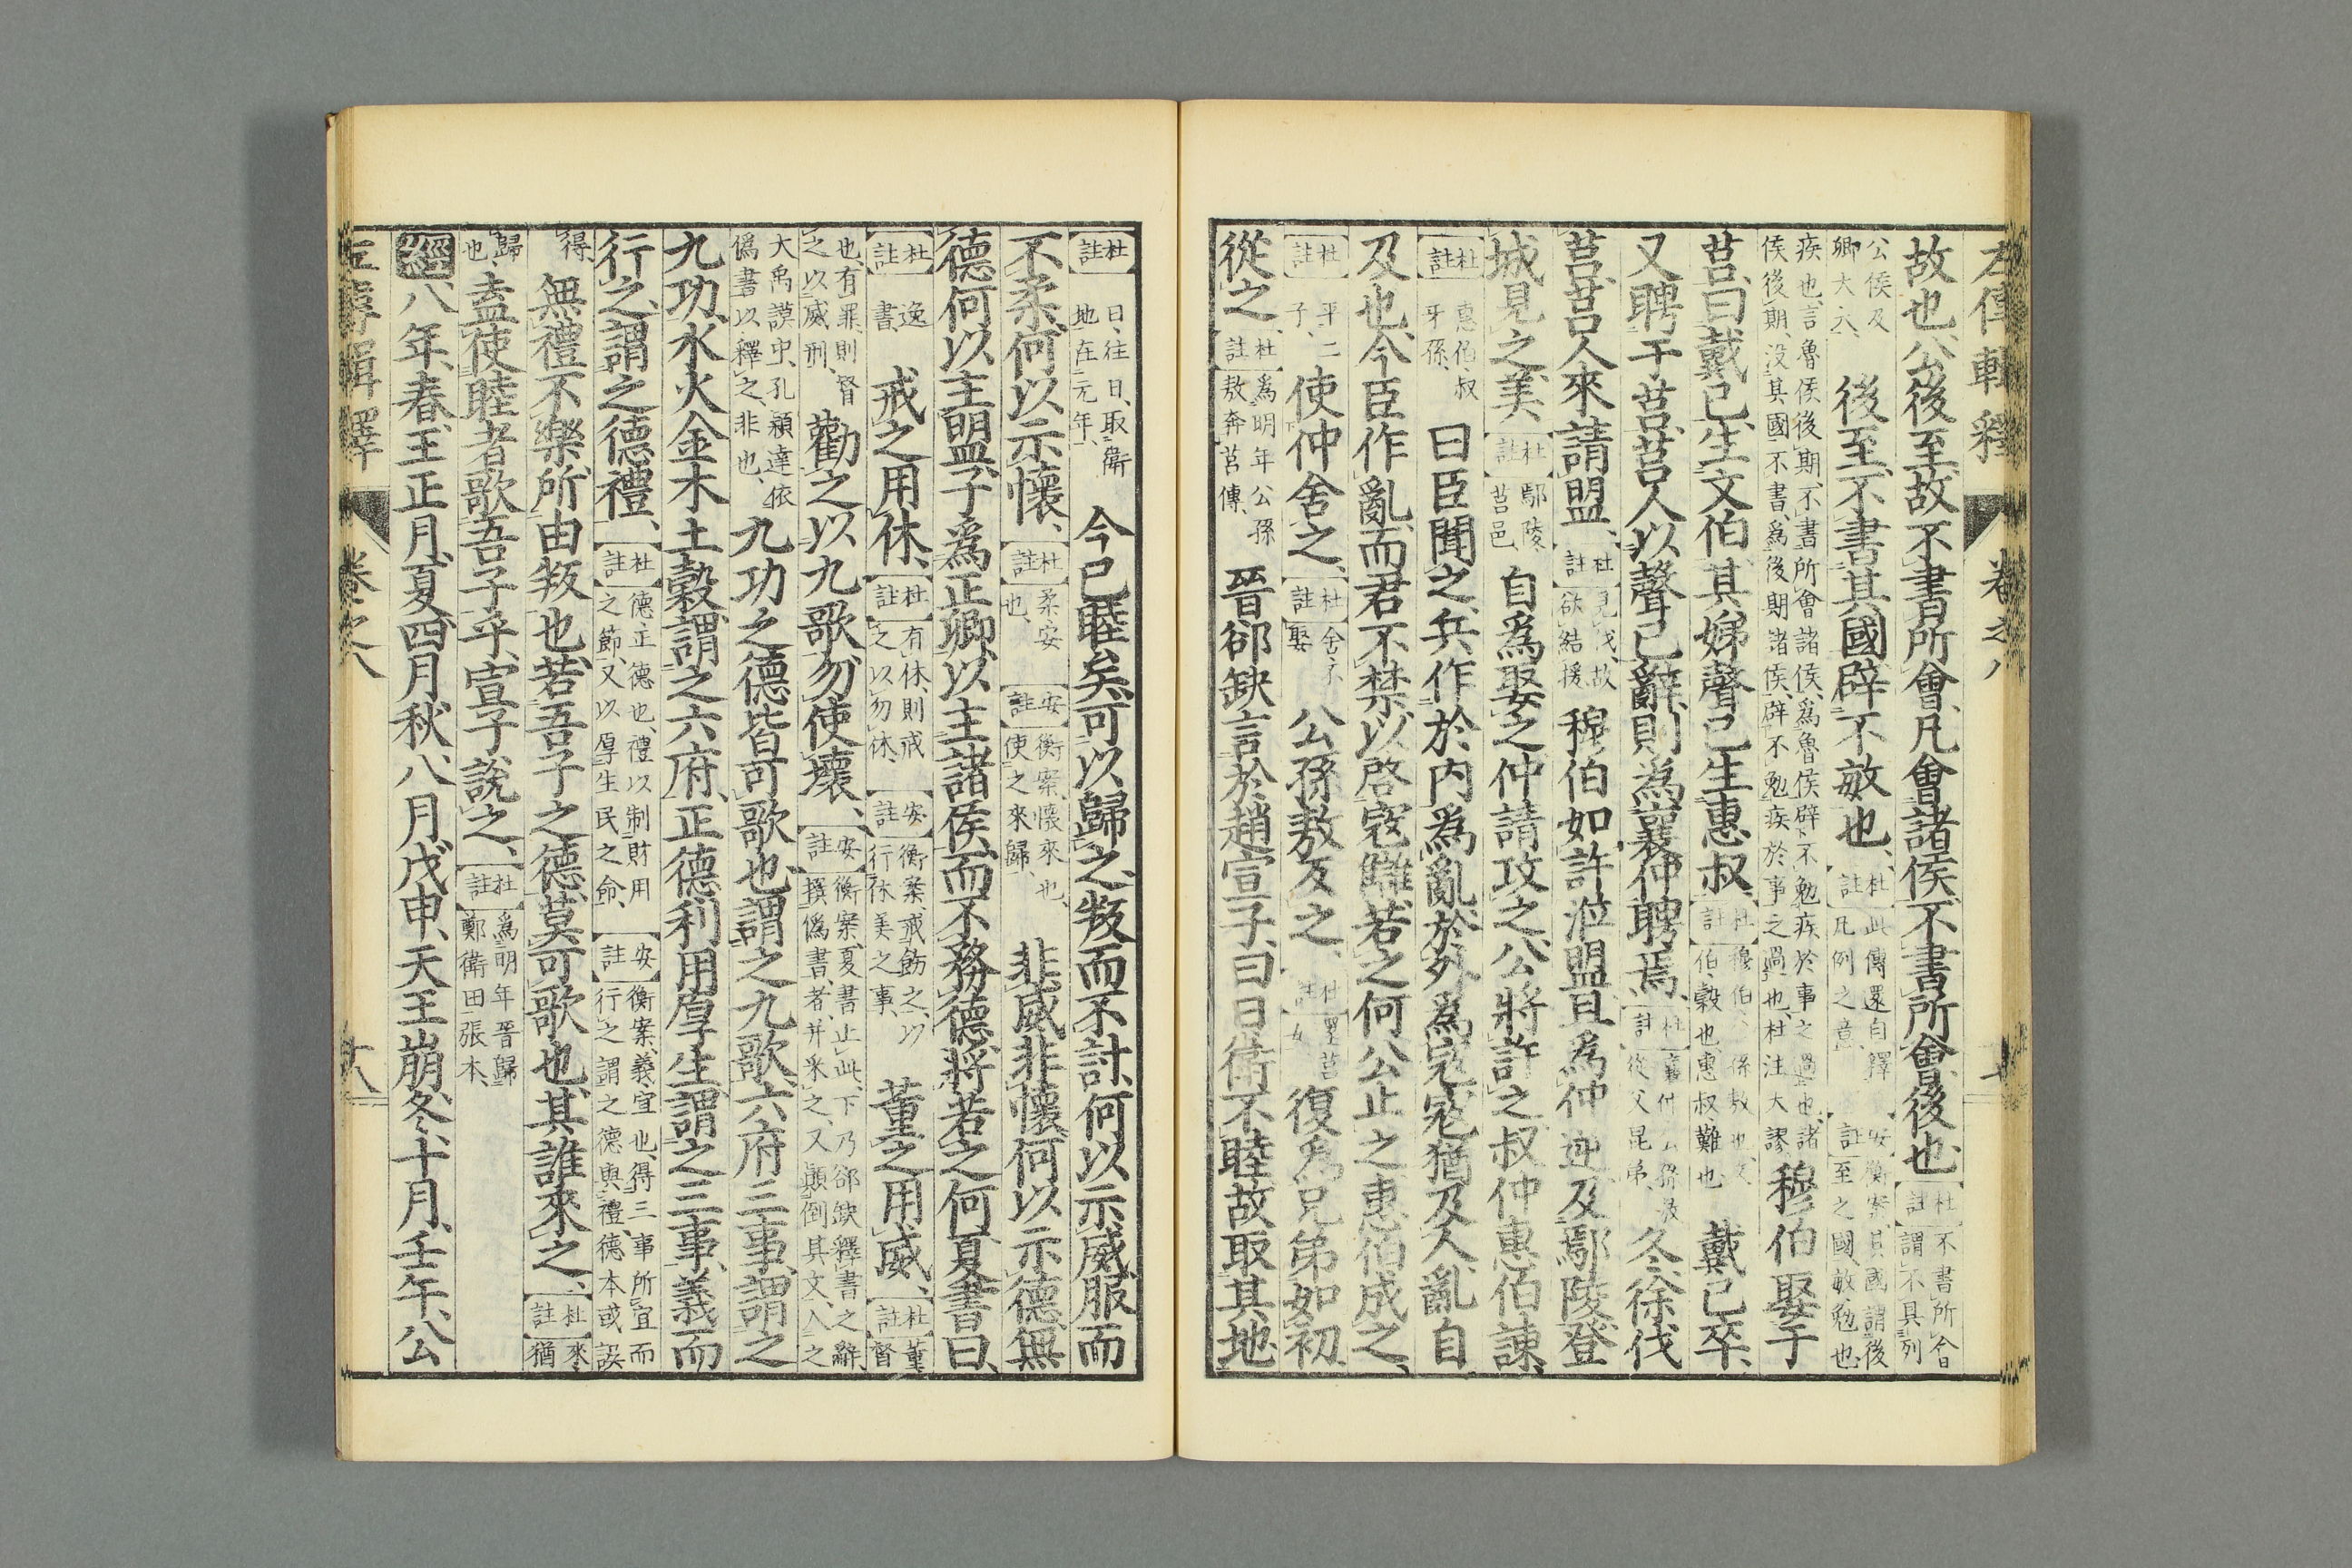 左傳輯釋 卷之八
故也、公後至、故不書所會、凡會諸侯、不書所會、後也、杜註不書所會、謂不具列
公侯及卿大夫、後至、不書其國、辟不敏也、杜註此傳還自釋凡例之意、安註衡案、其國謂後至之國、敏、勉也、
疾也、言魯侯後期、不書所會諸侯、爲魯侯辟不勉疾於事之過也、諸
侯後期、没其國不書、爲後期諸侯、辟不勉疾於事之過也、杜注大謬、穆伯娶于
莒、曰戴己、生文伯、其娣聲己生惠叔、杜註穆伯、公孫敖也、文伯、穀也、惠叔、難也、戴己卒、
又聘于莒、莒人以聲己辭、則爲襄仲聘焉、杜註襄仲、公孫敖從父昆弟、冬、徐伐
莒、莒人來請盟、杜註見伐、故欲結援、穆伯如許涖盟、且爲仲逆、及鄢陵、登
城見之、美、杜註鄢陵、莒邑、自爲娶之、仲請攻之、公將許之、叔仲惠伯諫、
杜註惠伯、叔牙孫、曰、臣聞之、兵作於内爲亂、於外爲寇、寇猶及人、亂自
及也、今臣作亂、而君不禁、以啓寇讎、若之何、公止之、惠伯成之、
杜註平二子、使仲舍之、杜註舍、不娶、公孫敖反之、杜註還莒女、復爲兄弟如初、
從之、杜註爲明年公孫敖奔莒傳、晉郤缺言於趙宣子、曰、日衛不睦、故取其地、
杜註日、往日、取衛地在元年、今已睦矣、可以歸之、叛而不討、何以示威、服而
不柔、何以示懷、杜註柔、安也、安註衡案、懷、來也、使之來歸、非威非懷、何以示德、無
德、何以主盟、子爲正卿、以主諸侯、而不務德、將若之何、夏書曰、
杜註逸書、戒之用休、杜註有休、則戒之以勿休、安註衡案、戒飭之、以行休美之事、董之用威、杜註董、督
也、有罪、則督之以威刑、勸之以九歌、勿使壞、安註衡案、夏書止此、下乃郤缺釋書之辭、撰僞書者、并釆之、又顚倒其文、入之
大禹謨中、孔穎達依僞書以釋之、非也、九功之德、皆可歌也、謂之九歌、六府三事、謂之
九功、水火金木土穀、謂之六府、正德利用厚生、謂之三事、義而
行之、謂之德禮、杜註德、正德也、禮以制財用之節、又以厚生民之命、安註衡案、義、宜也、得三事所宜而行之、謂之德與禮、德本或誤
得、無禮不樂、所由叛也、若吾子之德、莫可歌也、其誰來之、杜註來、猶
歸也、盍使睦者歌吾子乎、宣子說之、杜註爲明年晉歸鄭衛田張本、
經八年、春、王正月、夏四月、秋、八月、戊申、天王崩、冬、十月、壬午、公
左傳輯釋 卷之八 十八